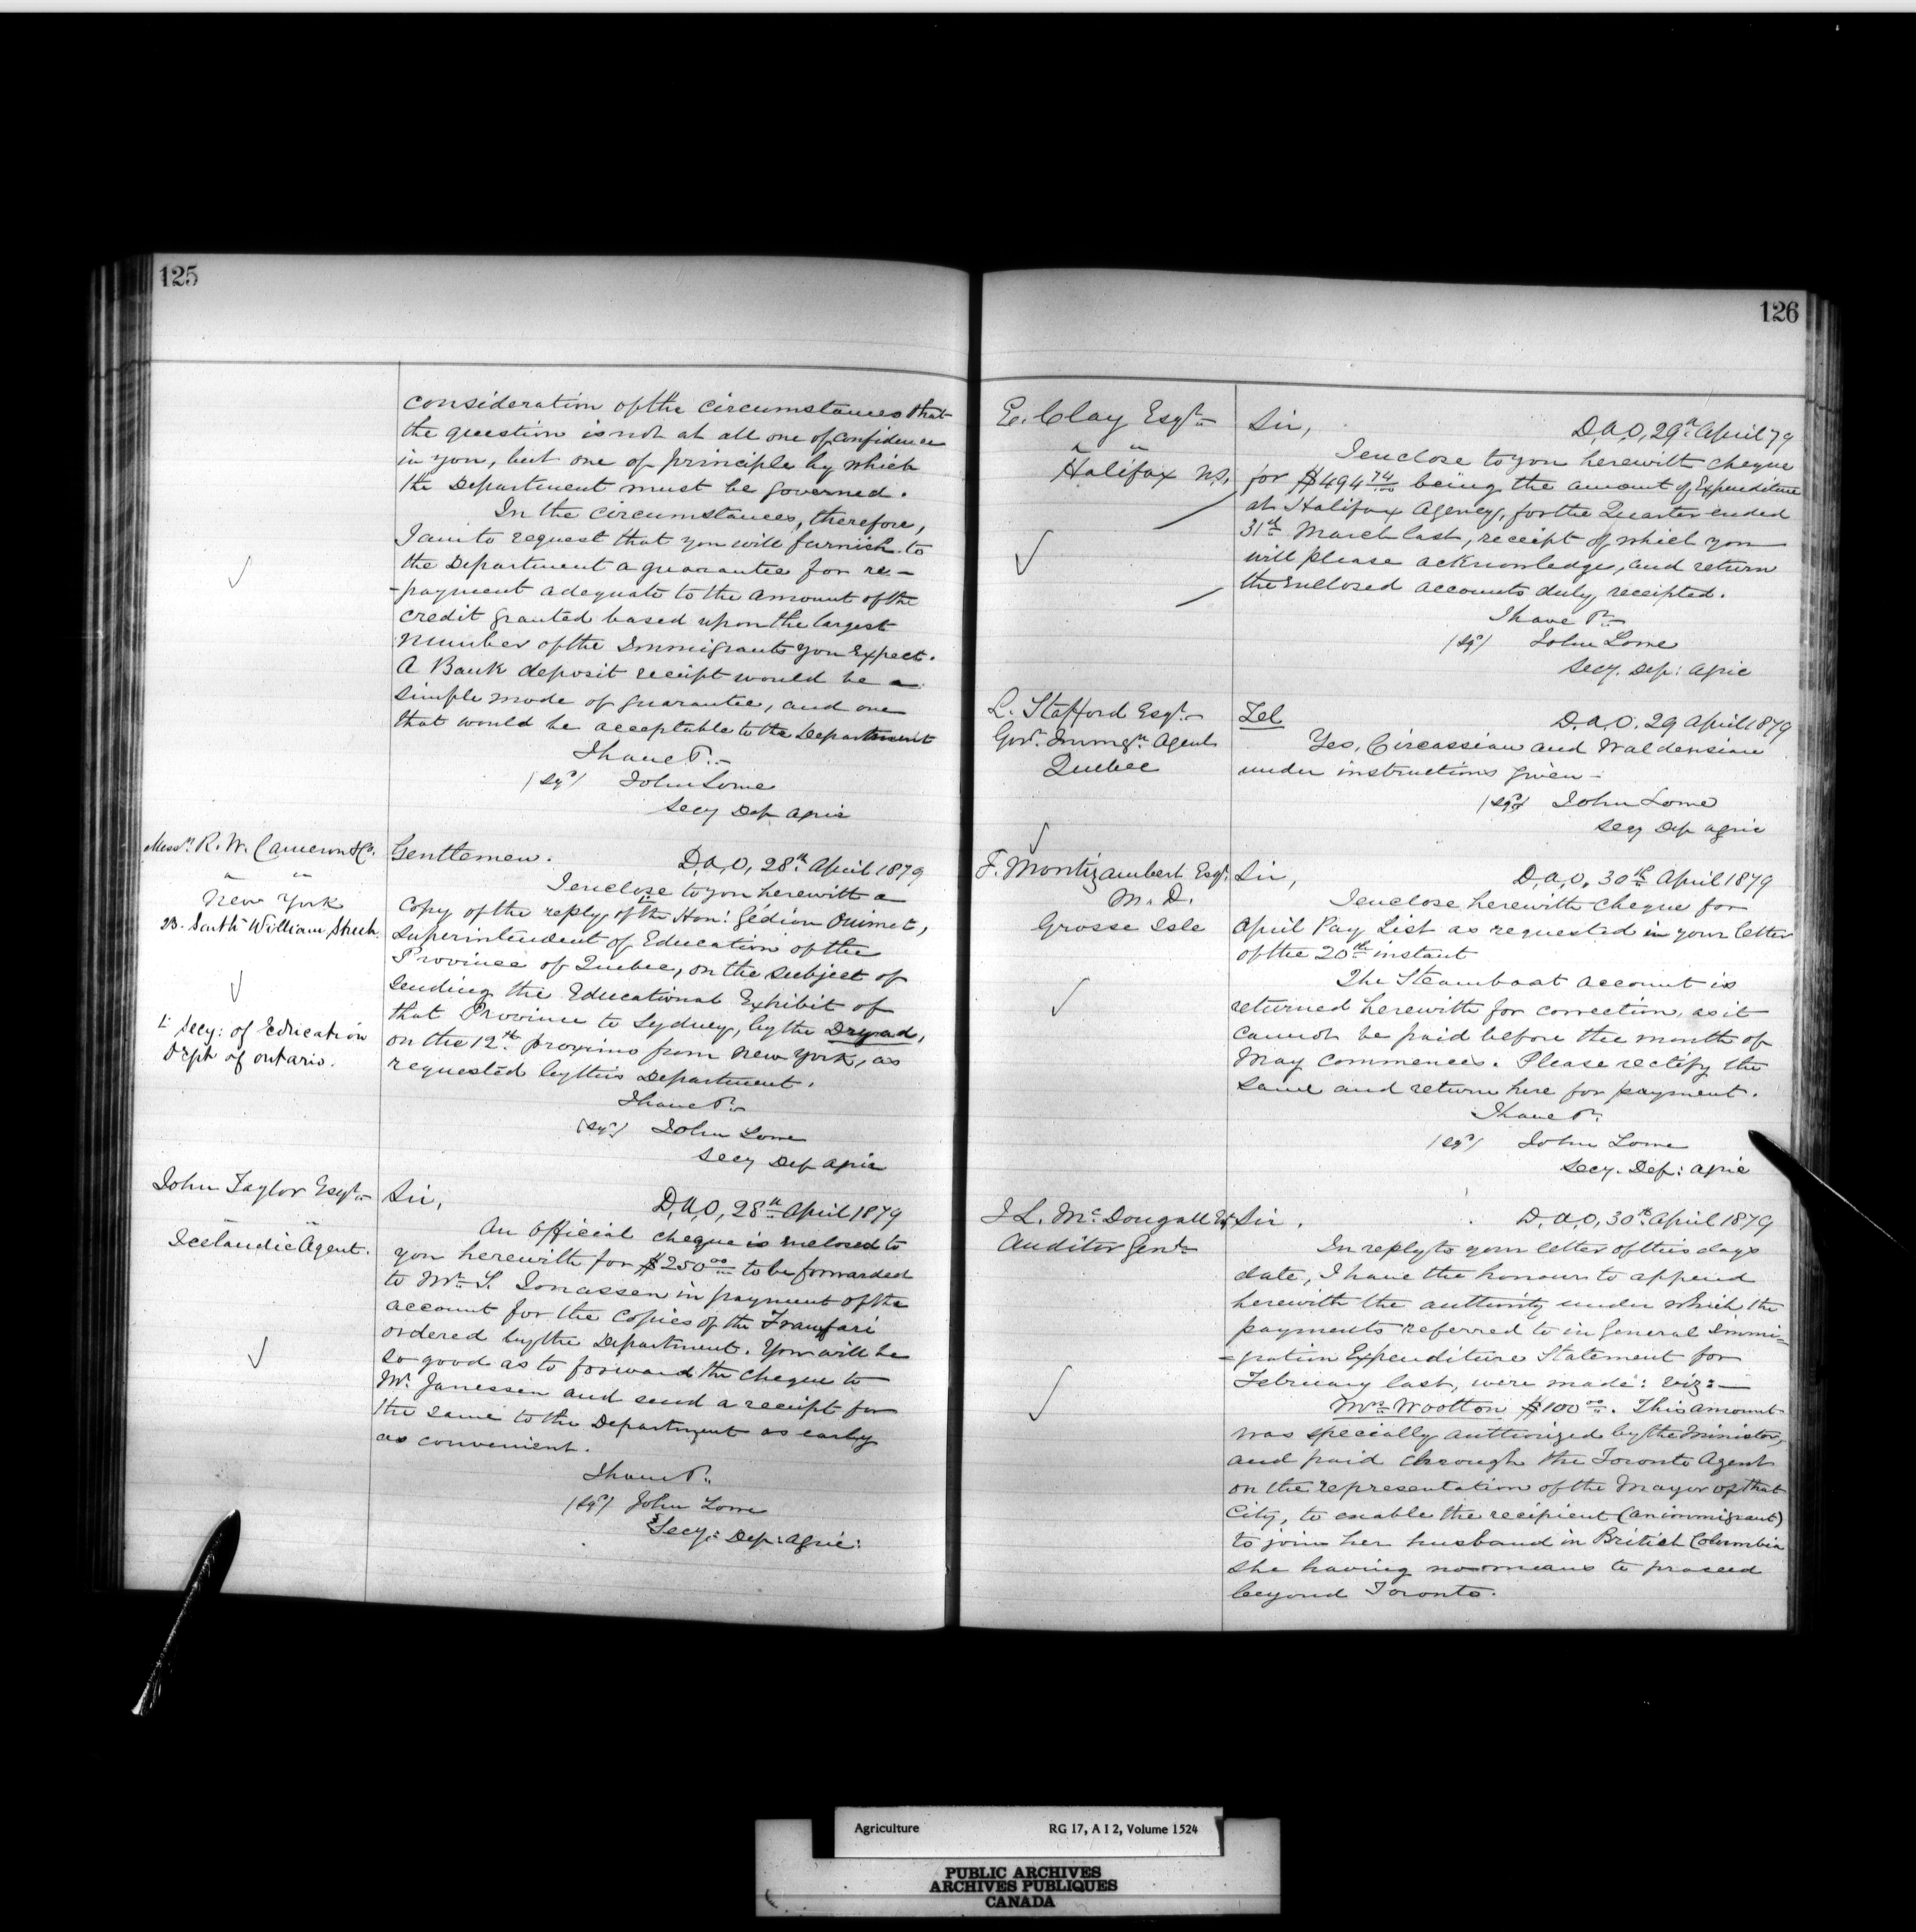 125
consideration of the circumstances that
the question is not at all one of confidence
in you, but one of principle by which
the Department must be governed.
In the circumstances, therefore,
I am to request that you will furnish to
the Department a guarantee for re-
-payment adequate to the amount of the
credit granted based upon the largest
number of the Immigrants you expect.
A Bank deposit receipt would be a
simple mode of guarantee, and one
that would be acceptable to the Department
I have &c.
(sgd) John Lowe
Secy Dep Agric
Messrs R. W. Cameron & Co.
New York
23. South William Street.
& Secy: of Education
Dept of Ontario.
Gentlemen. D, A, O, 28th April 1879
I enclose to you herewith a
copy of the reply of the Hon: Gédéon Ouimet,
Superintendent of Education of the
Province of Quebec, on the subject of
sending the Educational Exhibit of
that Province to Sydney, by the Dryad,
on the 12th proximo from New York, as
requested by this Department.
I have &c.
(sgd) John Lowe
Secy Dep Agric
John Taylor Esqr
Icelandic Agent.
Sir, D, A, O, 28th April 1879
An Official cheque is enclosed to
you herewith for $250 00/100 to be forwarded
to Mr S. Jonassen in payment of the
account for the Copies of the Framfari
ordered by the Department. You will be
so good as to forward the cheque to
Mr Janessen and send a receipt for
the same to the Department as early
as convenient.
I have &c.
(sgd) John Lowe
Secy: Dep: Agric:
126
E. Clay Esqr
" "
Halifax N.S.
Sir, D, A, O, 29th April 79
I enclose to you herewith cheque
for $494 74/100 being the amount of Expenditure
at Halifax Agency, for the Quarter ended
31st March last, receipt of which you
will please acknowledge, and return
the enclosed accounts duly receipted.
I have &c.
(sgd) John Lowe
Secy. Dep: Agric
L. Stafford Esqr
Govt. Immgn Agent
Quebec
Tel D. A. O. 29 April 1879
Yes, Circassian and Waldensian
under instructions given -
(sgd) John Lowe
Secy Dep Agric
F. Montizambert Esqr.
M. D.
Grosse Isle
Sir, D, A, O, 30th April 1879
I enclose herewith cheque for
April Pay List as requested in your letter
of the 20th instant
The Steamboat account is
returned herewith for correction, as it
cannot be paid before the month of
May commences. Please rectify the
same and return here for payment.
I have &c.
(sgd) John Lowe
Secy. Dep: Agric
J L. McDougall Esq
Auditor Genl
Sir. D, A, O, 30th April 1879
In reply to your letter of this days
date, I have the honour to append
herewith the authority under which the
payments referred to in General Immi-
-gration Expenditure Statement for
February last, were made: viz:-
Mrs Wootton $100 00/100. This amount
was specially authorized by the Minister,
and paid through the Toronto Agent
on the representation of the Mayor of that
City, to enable the recipient (an immigrant)
to join her husband in British Columbia
she having no means to proceed
beyond Toronto.
Agriculture RG 17, A I 2, Volume 1524
PUBLIC ARCHIVES
ARCHIVES PUBLIQUES
CANADA